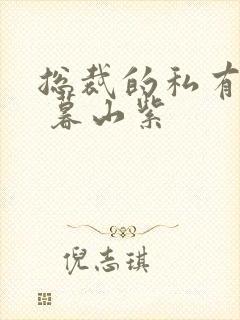 总裁的私有
暮山紫
倪志琪